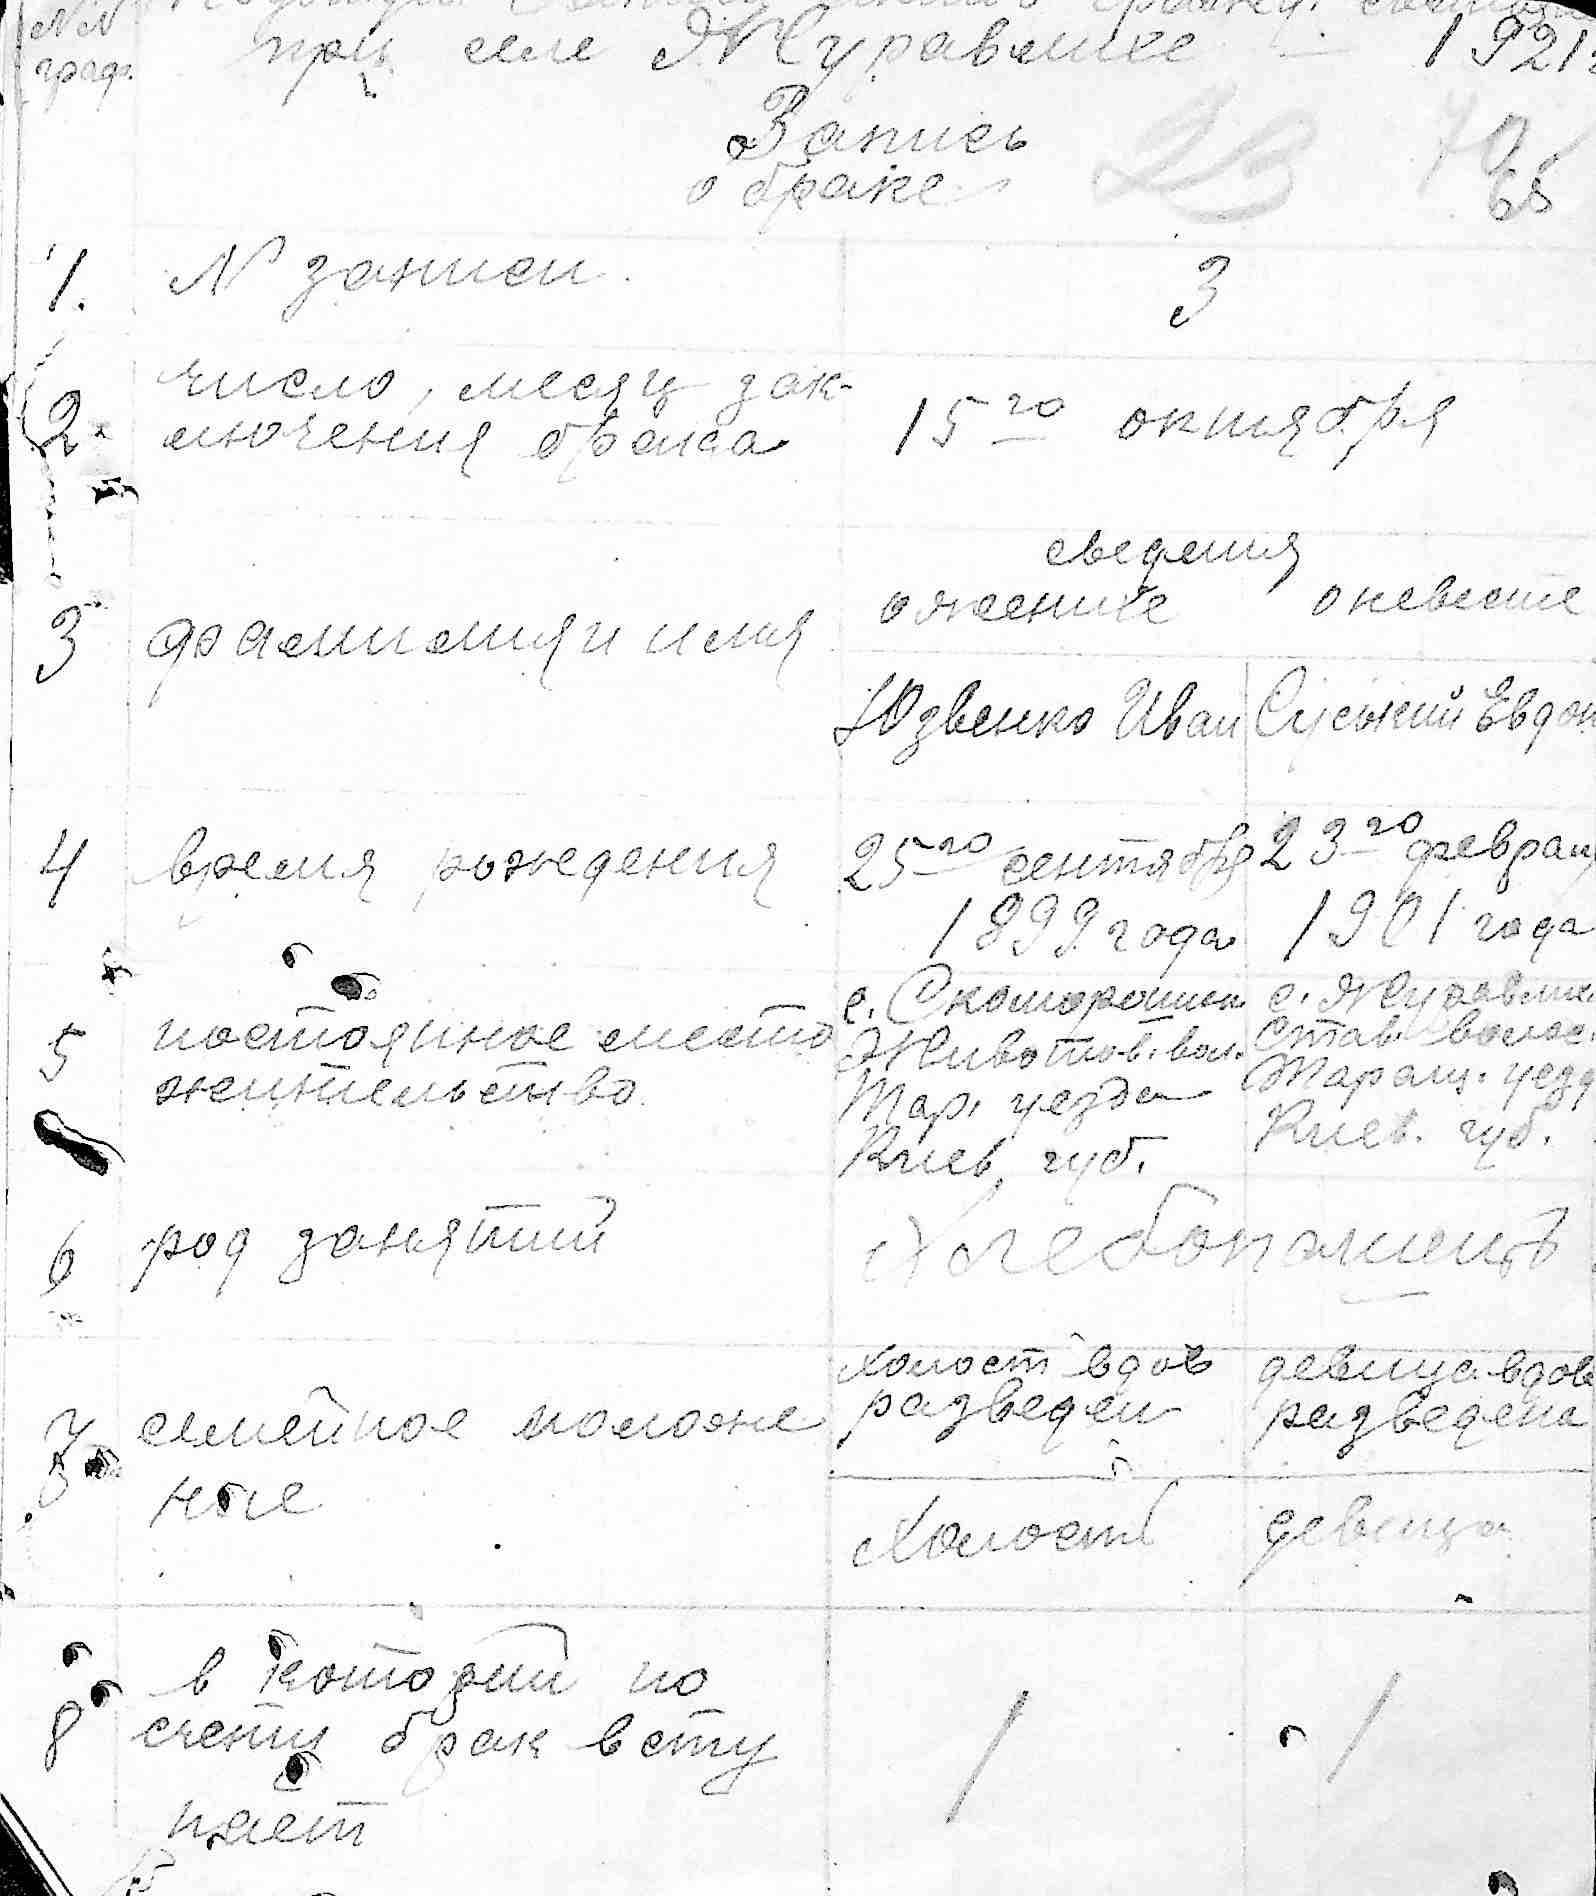 NN
граф.
при селе Журавлихе — 1921
Запись
о браке
70
68
1. N записи. 3
2. число, месяц зак-
лючения брака 15го октября
сведения
о женихе о невесте
3 фамилия и имя
Юзвенко Иван
Евдок
4 время рождения 25го сентября 23го феврал
1899 года 1901 года
5 постоянное место
жительство
с. Скоморошки
Животов. вол.
Тар. уезда
Киев. губ.
с. Журавлихи
Став. волос.
Таращ. уезд
Киев. губ.
6 род занятий Хлебопашецъ
7 семейное положе
ние
холост вдов
разведен
девица вдов
разведена
Холостъ девица
8 в который по
счету брак всту
пает
1 1